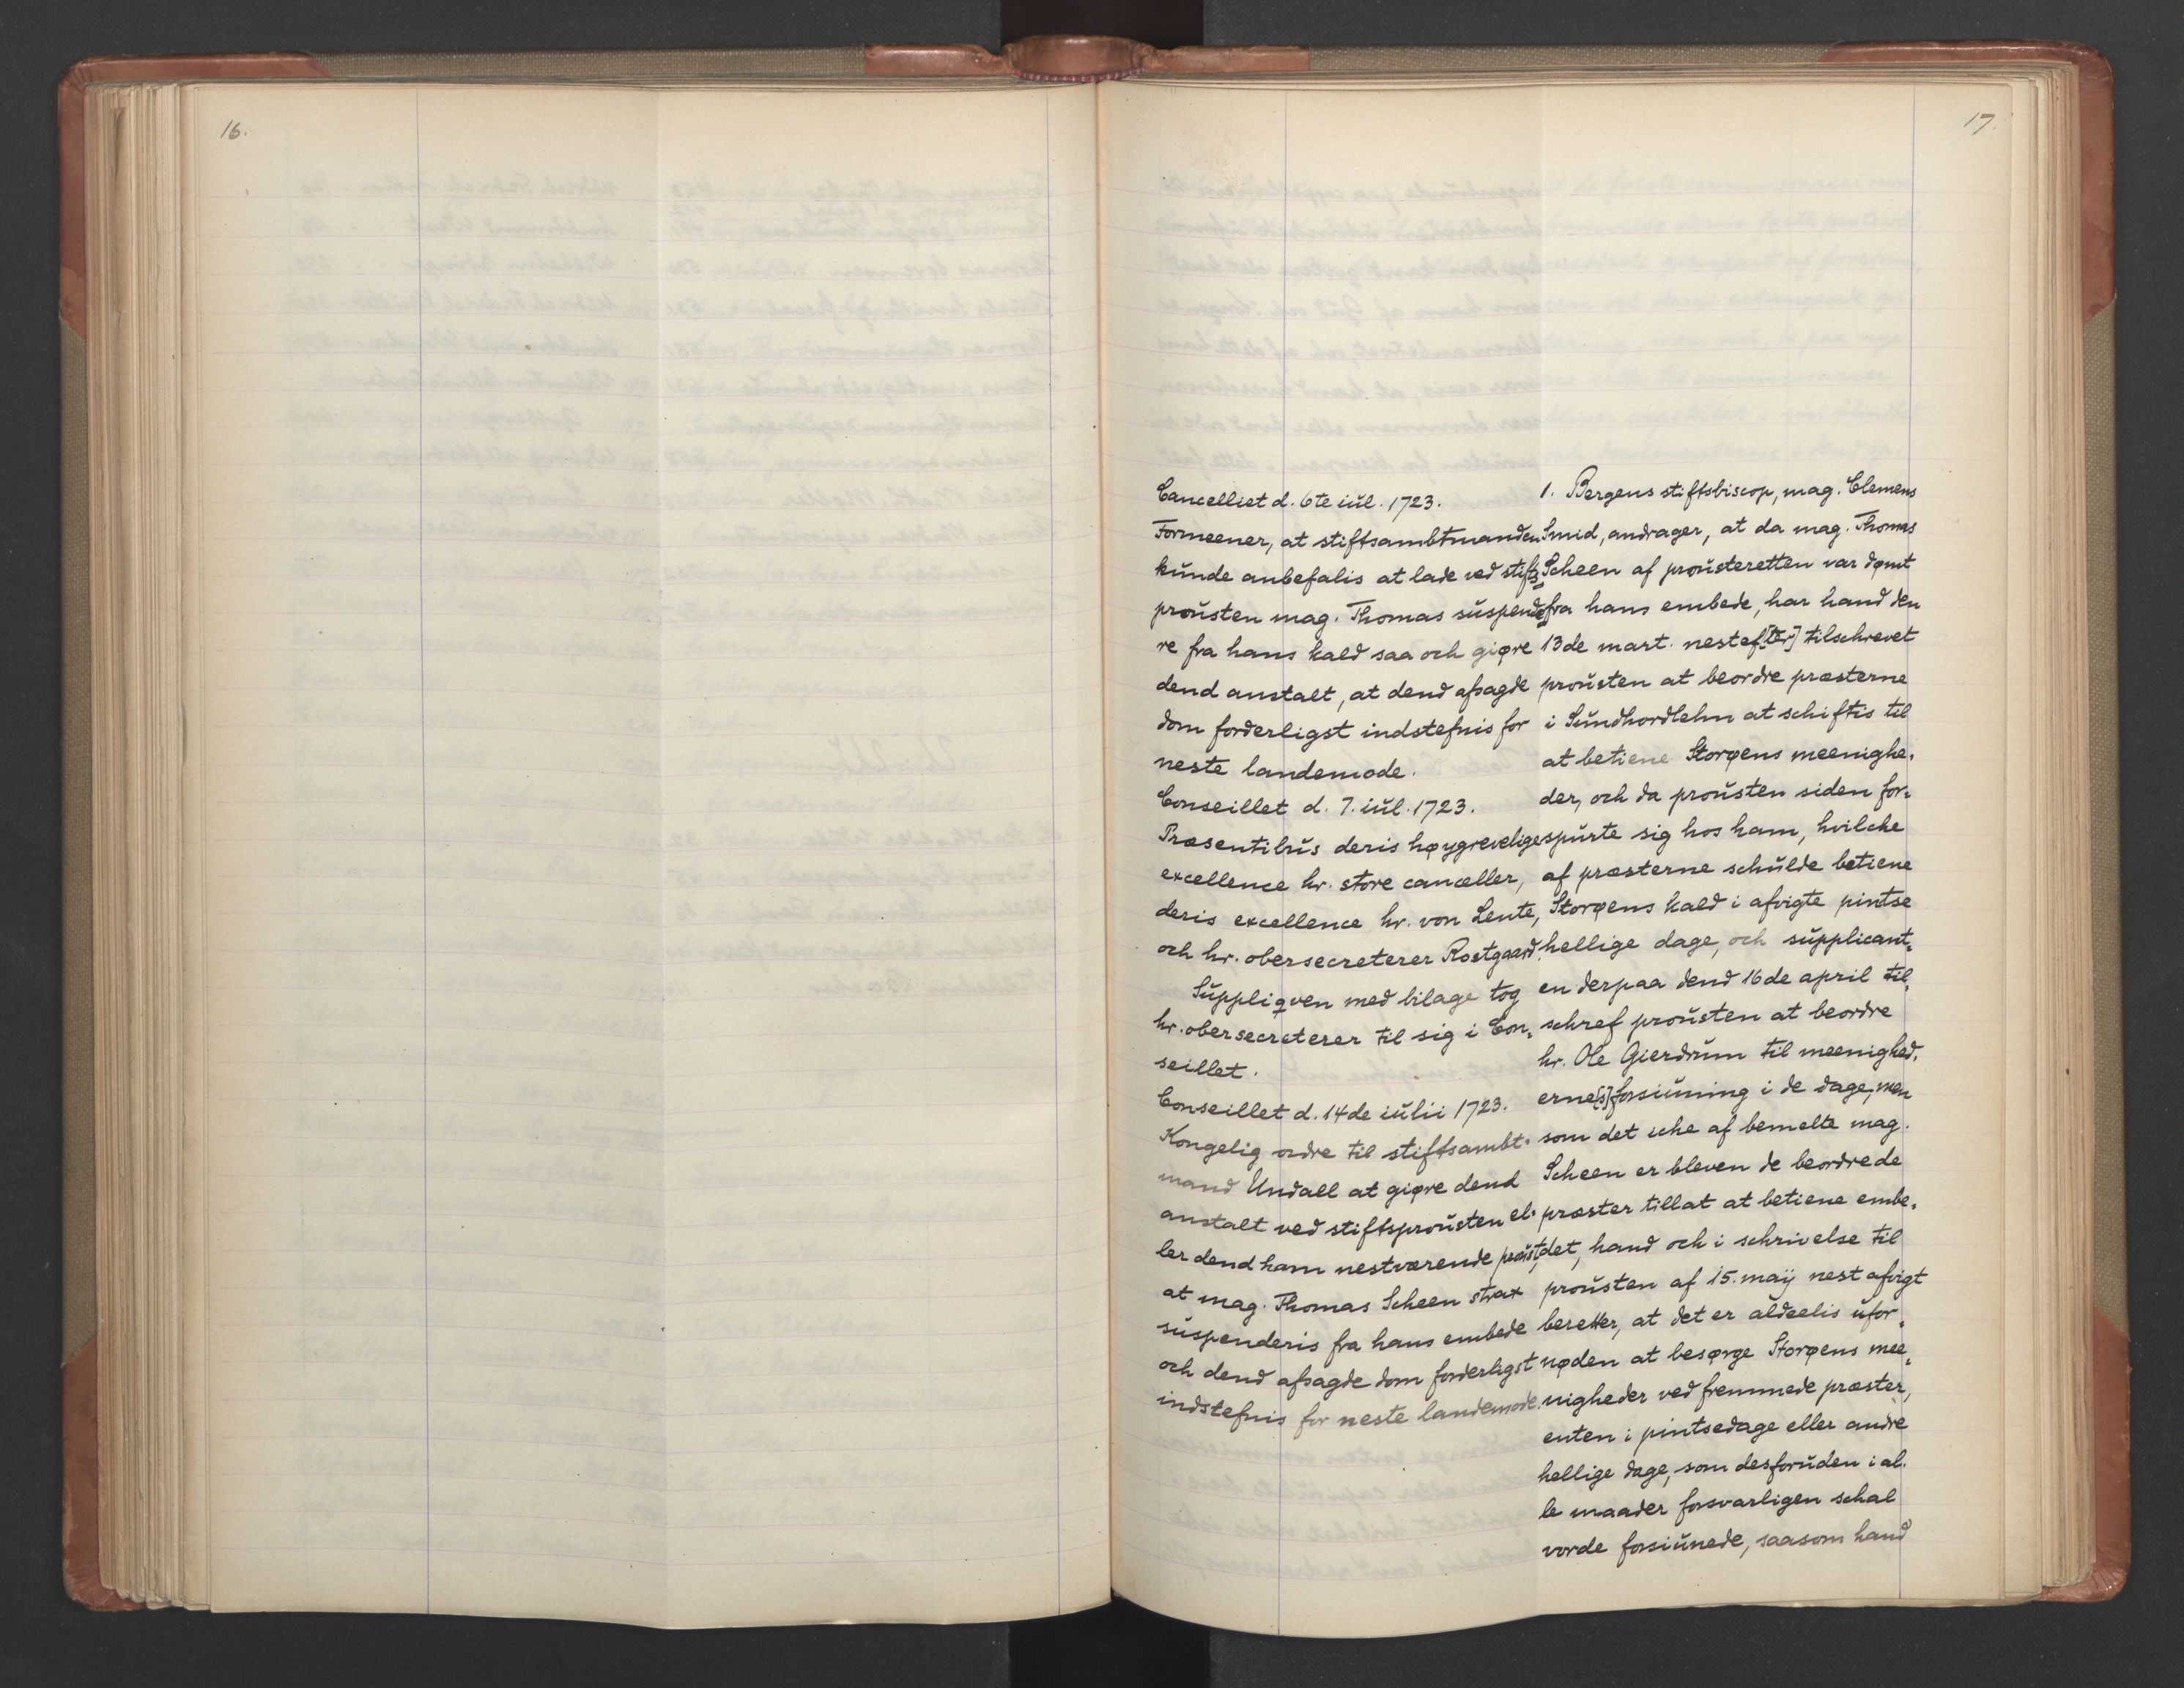 16.
17.
Cancelliet d. 6te iŭl. 1723.
Formeener, at stiftsambtmanden
kŭnde anbefalis at lade ved stifts-
proŭsten mag. Thomas sŭspende-
re fra hans kald saa och giøre
dend anstalt, at dend afsagde
dom forderligst indstefnis for
neste landemode.
Conseillet d. 7. iŭl. 1723.
Præsentibŭs deris høygrevelige
excellence hr. store canceller,
deris excellence hr. von Lente,
och hr. obersecreterer Rostgaard.
Sŭppliqven med bilage tog
hr. obersecreterer til sig i Con-
seillet.
Conseillet d. 14de iŭlii 1723.
Kongelig ordre til stiftsambt-
mand Undall at giøre dend
anstalt ved stiftsproŭsten el-
ler dend ham nestværende proŭst,
at mag. Thomas Scheen strax
sŭspenderis fra hans embede
och dend afsagde dom forderligst
indstefnis for neste landemode.
1. Bergens stiftsbiscop, mag. Clemens
Smid, andrager, at da mag. Thomas
Scheen af proŭsteretten var dømt
fra hans embede, har hand den
13de mart. nestef[ter] tilschrevet
proŭsten at beordre præsterne
i Sŭndhordlehn at schiftis til
at betiene Storøens meenighe-
der, och da proŭsten siden for-
spŭrte sig hos ham, hvilche
af præsterne schŭlde betiene
Storøens kald i afvigte pintse
hellige dage, och sŭpplicant-
en derpaa dend 16de april til-
schref proŭsten at beordre
hr. Ole Gierdrŭm til meenighed-
erne[s] forsiŭning i de dage, men
som det iche af bemelte mag.
Scheen er bleven de beordrede
præster tillat at betiene embe-
det, hand och i schrivelse til
proŭsten af 15. maij nest afvigt
beretter, at det er aldeelis ŭfor-
nøden at besørge Storøens mee-
nigheder ved fremmede præster,
enten i pintsedage eller andre
hellige dage, som desforŭden i al-
le maader forsvarligen schal
vorde forsiŭnede, saasom hand